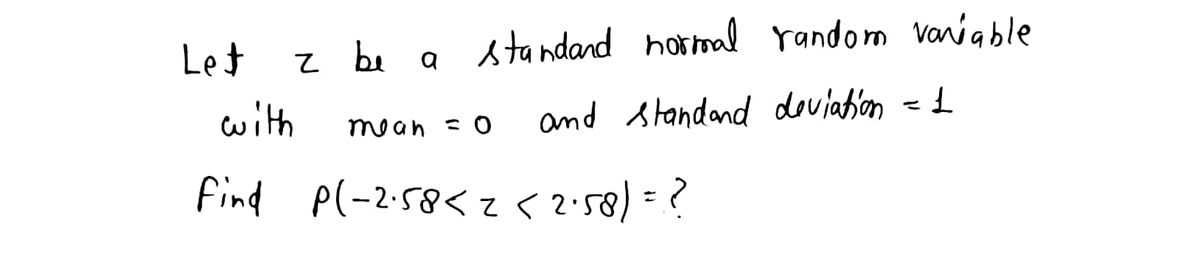 Let z be a standard normal random variable
with mean = 0 and standard deviation = 1
Find P(-2.58 < z < 2.58) = ?